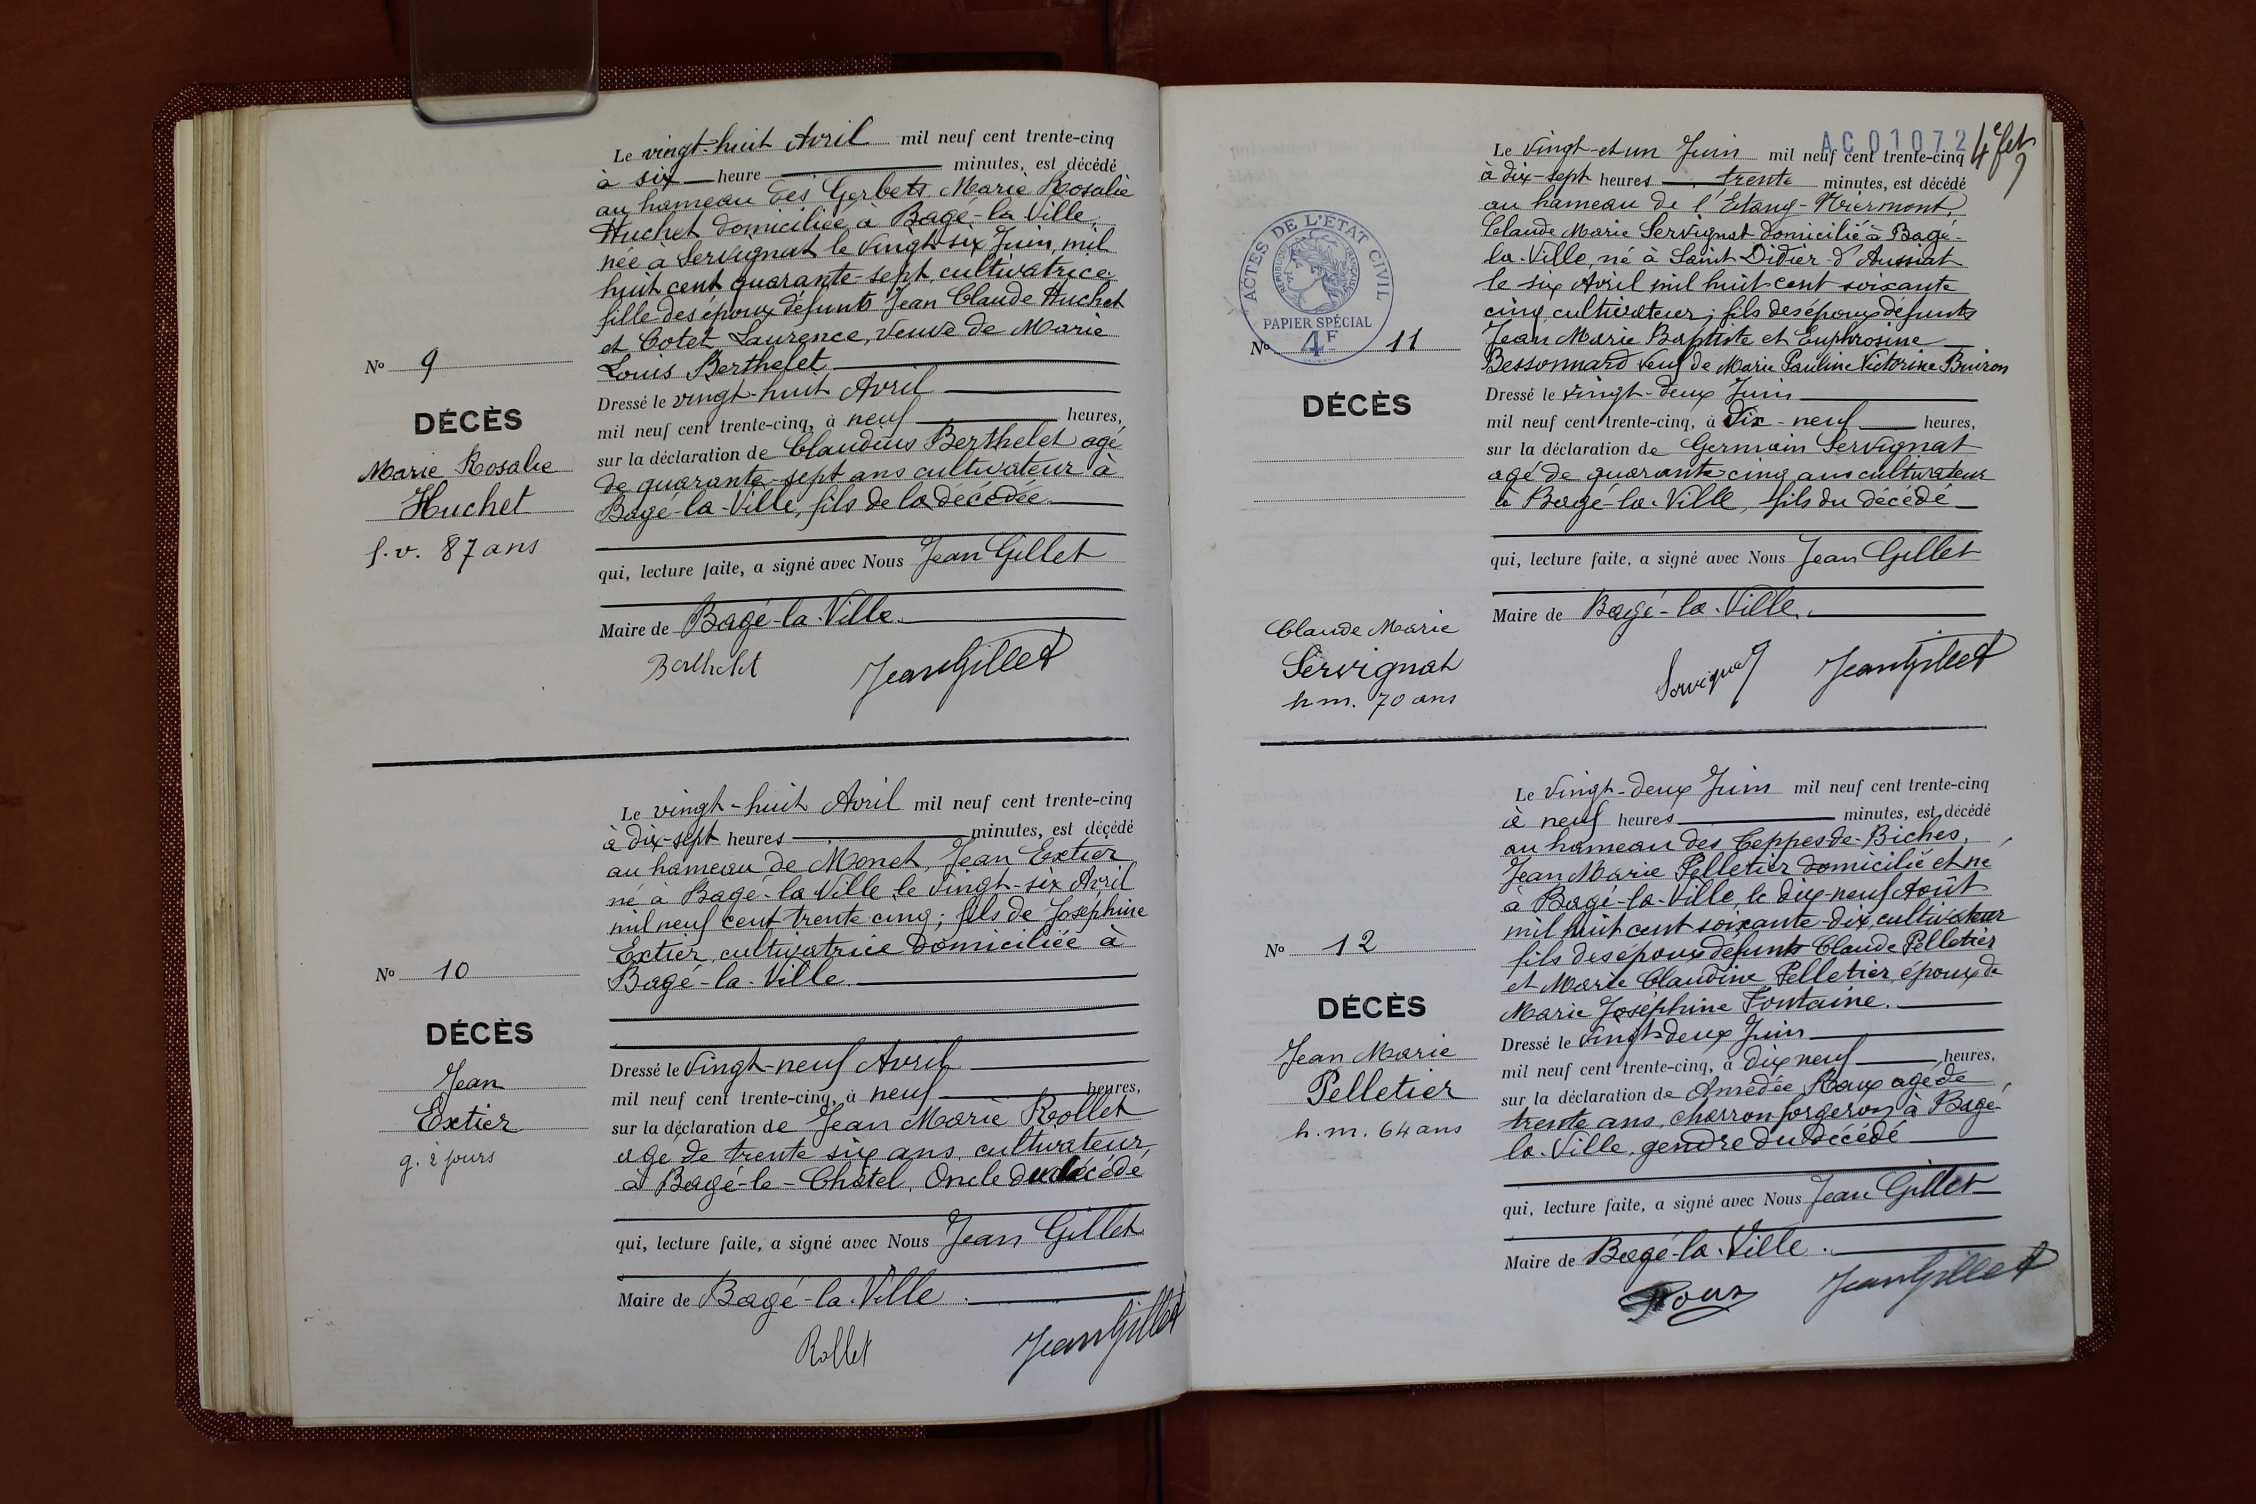 Le vingt-huit Avril mil neuf cent trente-cinq
à six heure minutes, est décédé
au hameau des Gerbets Marie Rosalie
Huchet domiciliée à Bagé-la Ville,
née à Servignat le vingt-six Juin mil
huit cent quarante-sept, cultivatrice;
fille des époux défunts Jean Claude Huchet
et Cotet Laurence, veuve de Marie
Louis Berthelet
No 9
DÉCÈS
Marie Rosalie
Huchet
f.v. 87 ans
Dressé le vingt-huit Avril
mil neuf cent trente-cinq, à neuf heures,
sur la déclaration de Claudius Berthelet agé
de quarante-sept ans cultivateur à
Bagé-la-Ville, fils de la décédée
qui, lecture faite, a signé avec Nous Jean Gillet
Maire de Bagé-la-Ville
Berthelet Jean Gillet
Le vingt-huit Avril mil neuf cent trente-cinq
à dix-sept heures minutes, est décédé
au hameau de Monet, Jean Extier
né à Bagé-la Ville le vingt-six Avril
mil neuf cent trente cinq; fils de Joséphine
Extier, cultivatrice domiciliée à
Bagé-la-Ville.
No 10
DÉCÈS
Jean
Extier
g. 2 jours
Dressé le vingt-neuf Avril
mil neuf cent trente-cinq, à neuf heures,
sur la déclaration de Jean Marie Rollet
agé de trente six ans, cultivateur
à Bagé-le-Châtel, Oncle du décédé
qui, lecture faite, a signé avec Nous Jean Gillet
Maire de Bagé-la-Ville.
Rollet Jean Gillet
AC01072
4e fet
Le vingt-et un Juin mil neuf cent trente-cinq
à dix-sept heures trente minutes, est décédé
au hameau de l'Etang-
Claude Marie Servignat domicilié à Bagé-
la-Ville, né à Saint Didier-d'Aussiat
le six Avril mil huit cent soixante
cinq, cultivateur; fils des époux défunts
Jean Marie Baptiste et Euphrosine
Bessonnard veuf de Marie Pauline Victorine Buiron
ACTES DE L'ÉTAT CIVIL
RÉPUBLIQUE FRANÇAISE
PAPIER SPÉCIAL
4F
No 11
DÉCÈS
Claude Marie
Servignat
h m. 70 ans
Dressé le vingt-deux Juin
mil neuf cent trente-cinq, à dix-neuf heures,
sur la déclaration de Germain Servignat
agé de quarante-cinq ans cultivateur
à Bagé-la-Ville, fils du décédé
qui, lecture faite, a signé avec Nous Jean Gillet
Maire de Bagé-la-Ville.
Servignat Jean Gillet
Le vingt-deux Juin mil neuf cent trente-cinq
à neuf heures minutes, est décédé
au hameau des Ceppes-de-Biches,
Jean Marie Pelletier domicilié et né
à Bagé-la-Ville, le dix neuf Août
mil huit cent soixante-dix, cultivateur
fils des époux défunts Claude Pelletier
et Marie Claudine Pelletier, époux de
Marie Joséphine Fontaine.
No 12
DÉCÈS
Jean Marie
Pelletier
h. m. 64 ans
Dressé le vingt-deux Juin
mil neuf cent trente-cinq, à dix neuf heures,
sur la déclaration de Amédée Roux agé de
trente ans, charron forgeron à Bagé-
la-Ville, gendre du décédé
qui, lecture faite, a signé avec Nous Jean Gillet
Maire de Bagé-la-Ville.
Roux Jean Gillet